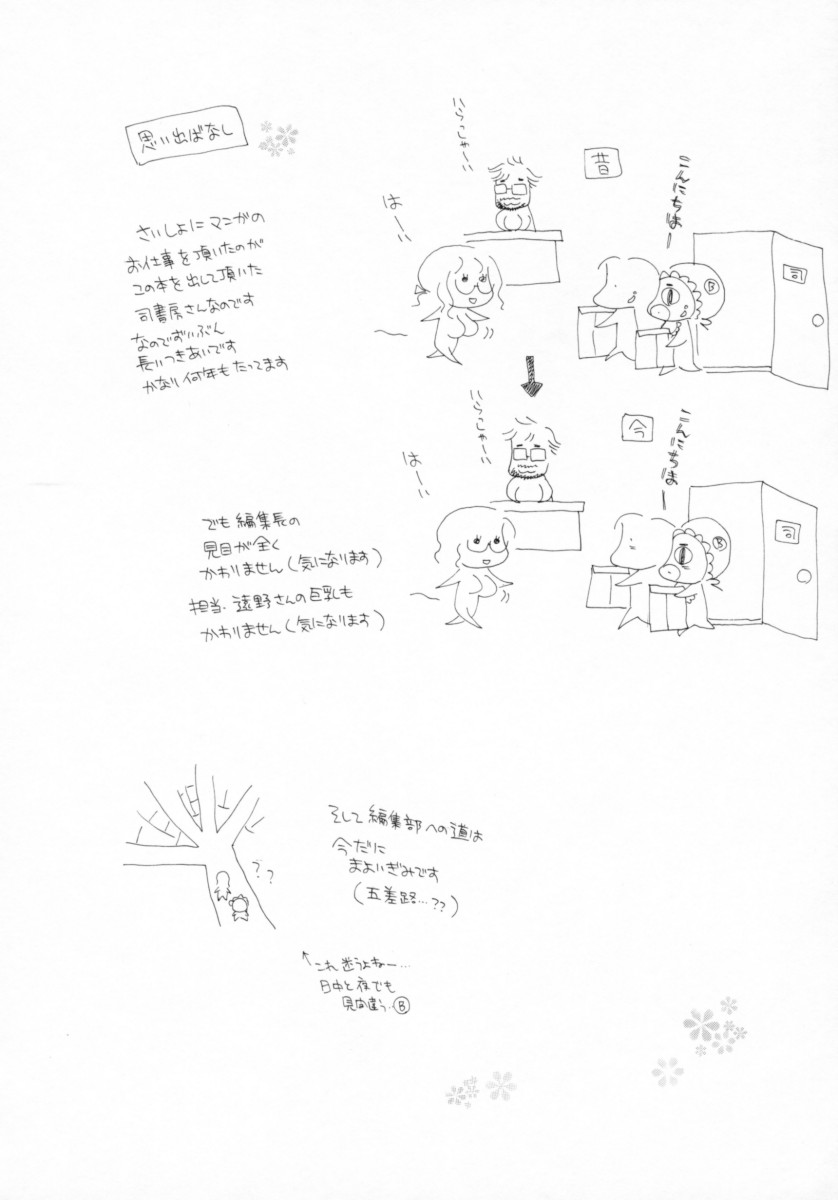 思い出ばなし
さいしょにマンガの
お仕事を頂いたのが
この本を出して頂いた
司書房さんなのです
なのでずいぶん
長いつきあいです
かなり何年もたってます
昔
いらっしゃーい
はーい
こんにちはー
B
司
今
いらっしゃーい
はーい
こんにちはー
B
司
でも編集長の
見目が全く
かわりません(気になります)
担当・遠野さんの巨乳も
かわりません(気になります)
そして編集部への道は
今だに
まよいぎみです
(五差路…??)
??
↑これ迷うよねー…
日中と夜でも
見間違う…B